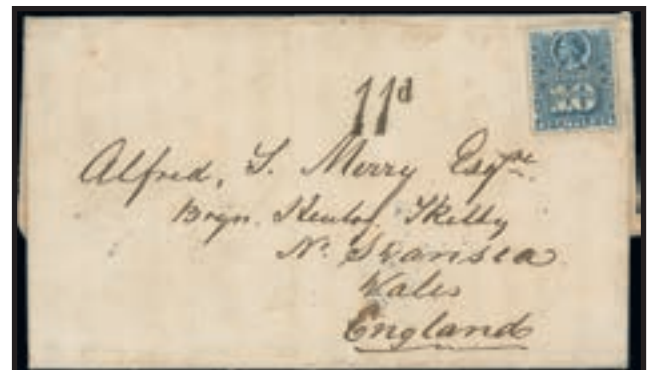 10
11d
Alfred, S. Merry Esqre.
Bryn. Heulog Sketty
Nr. Swansea
Wales
England